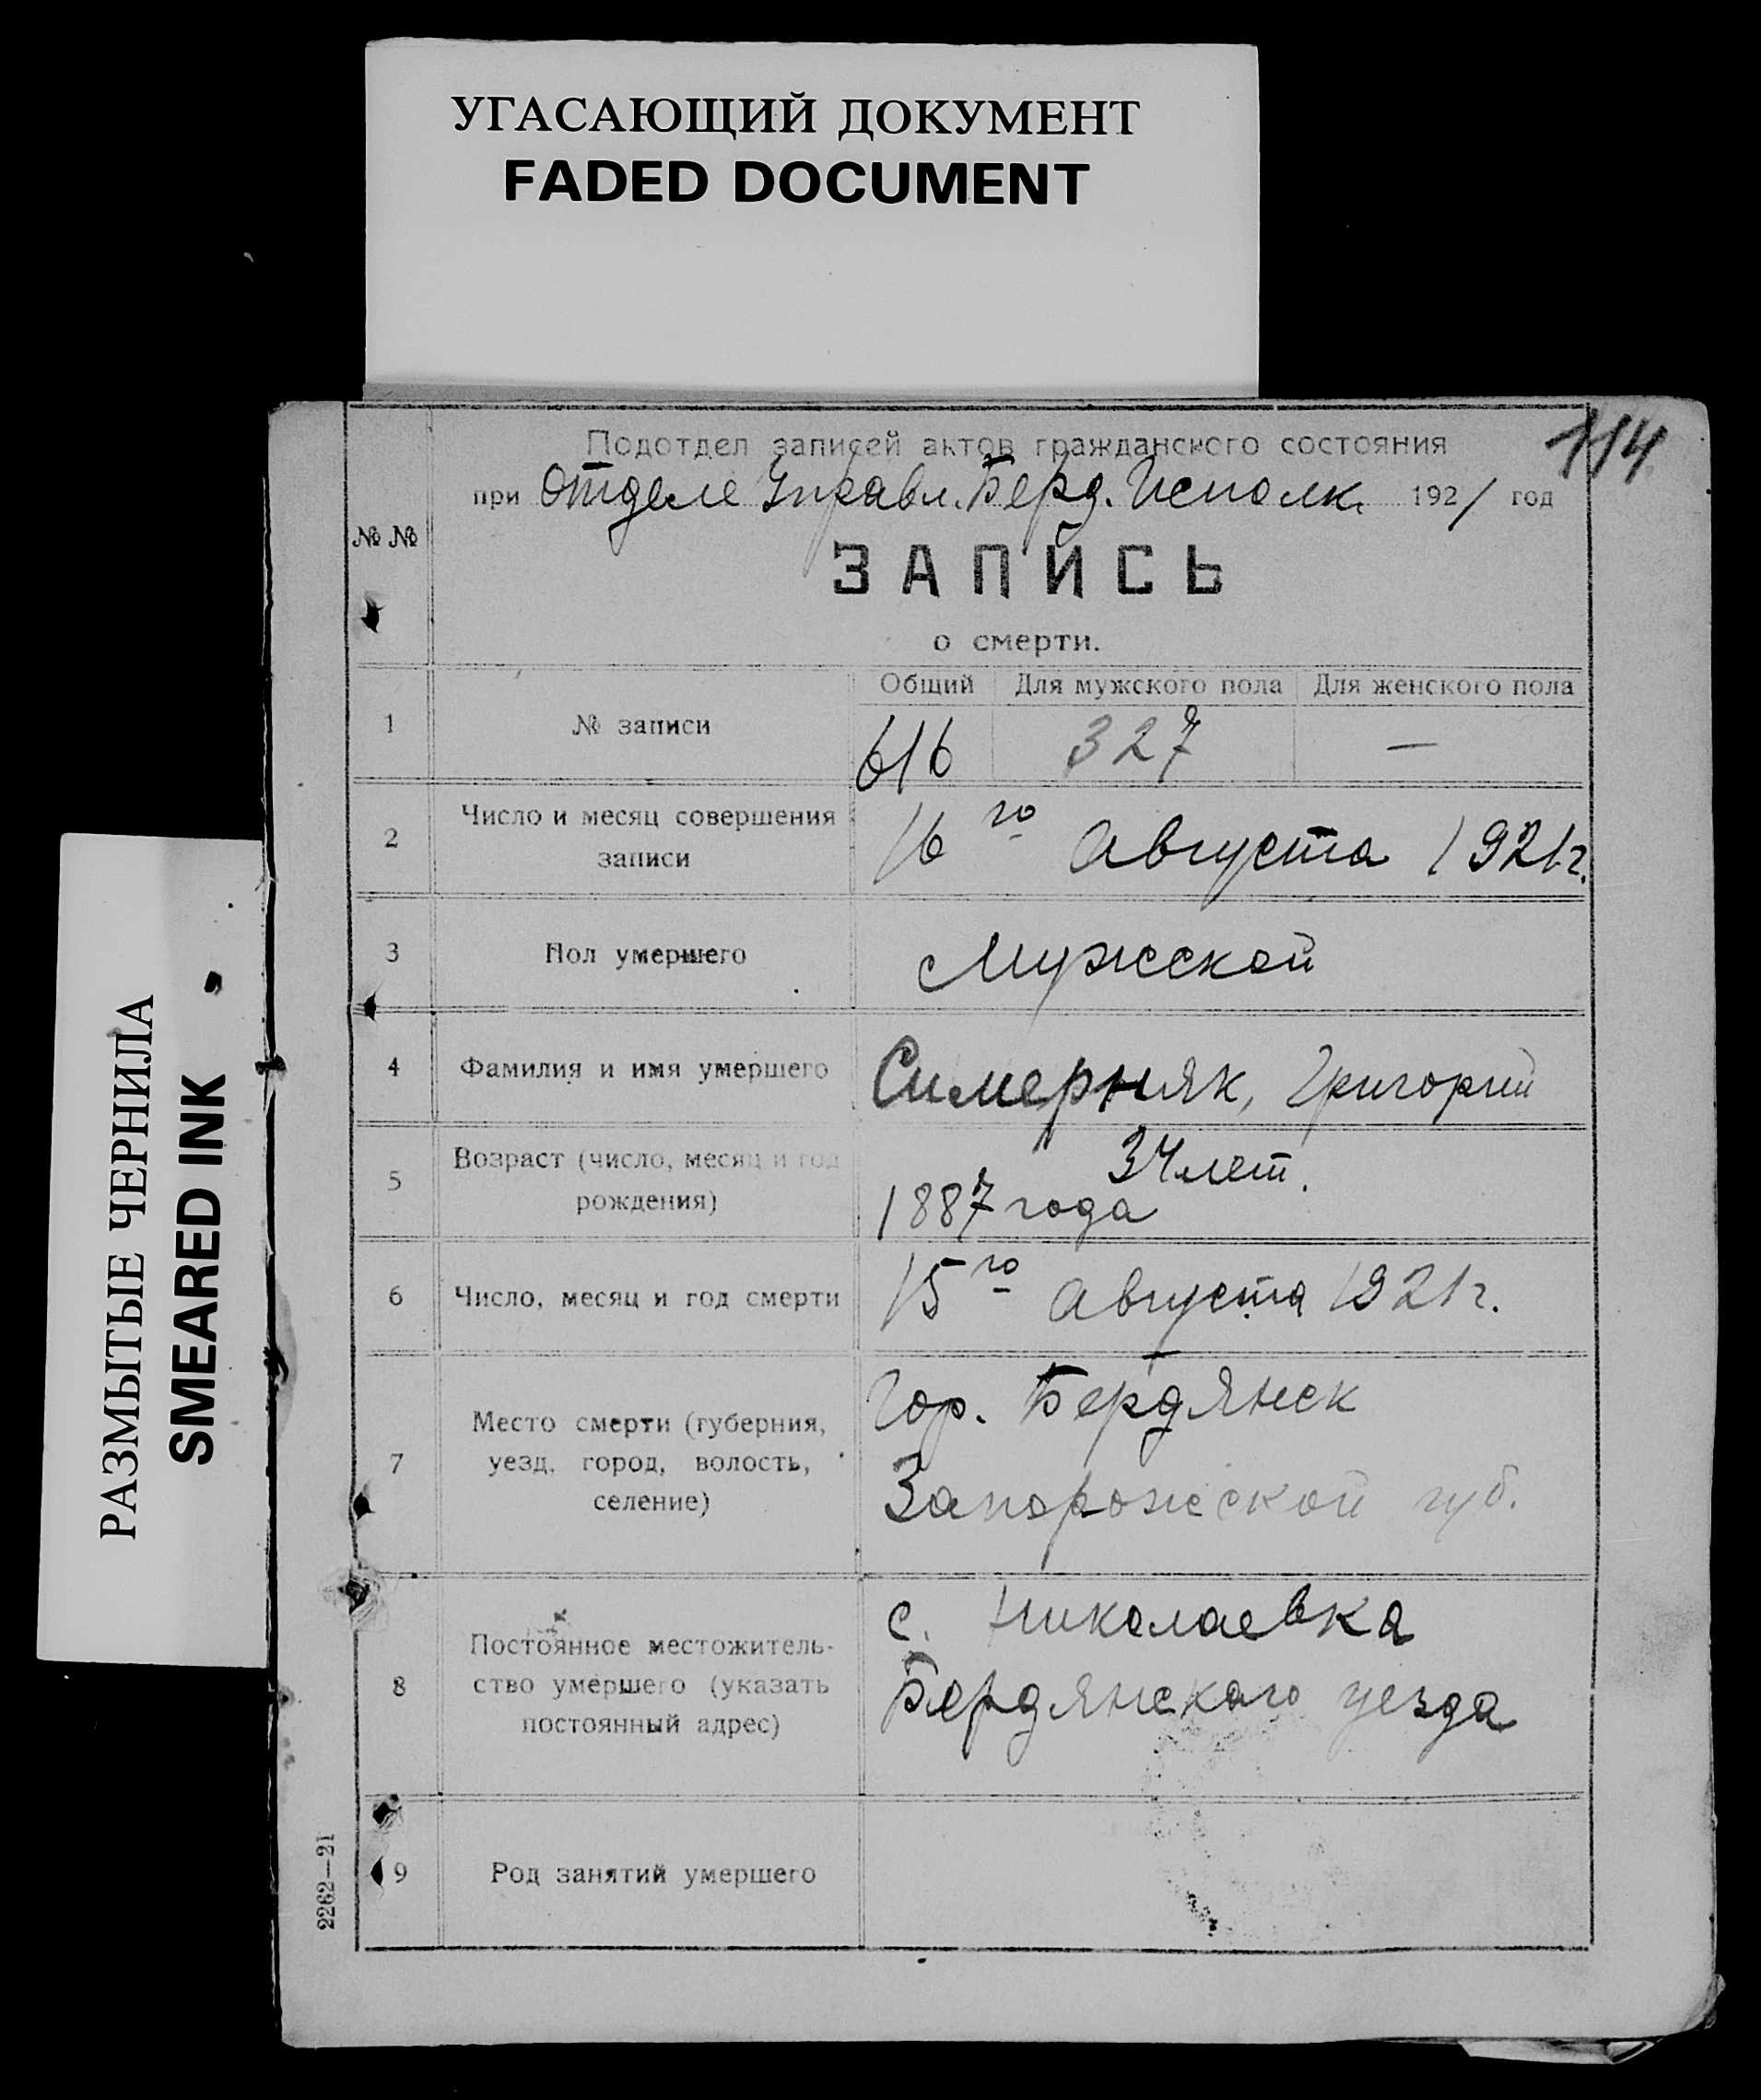 УГАСАЮЩИЙ ДОКУМЕНТ
FADED DOCUMENT
РАЗМЫТЫЕ ЧЕРНИЛА
SMEARED INK
114
Подотдел записей актов гражданского состояния
при Отделе Управл. Берд. Исполк. 1921 год
№ №
ЗАПИСЬ
о смерти.
Общий Для мужского пола Для женского пола
1 № записи 616 327 —
2 Число и месяц совершения
записи
16го Августа 1921 г.
3 Пол умершего Мужской
4 Фамилия и имя умершего Симерняк, Григорий
5 Возраст (число, месяц и год
рождения)
34 лет.
1887 года
6 Число, месяц и год смерти 15го Августа 1921 г.
7 Место смерти (губерния,
уезд, город, волость,
селение)
Гор. Бердянск
Запорожской губ.
8 Постоянное местожитель-
ство умершего (указать
постоянный адрес)
с. Николаевка
Бердянского уезда
9 Род занятий умершего
2262—21